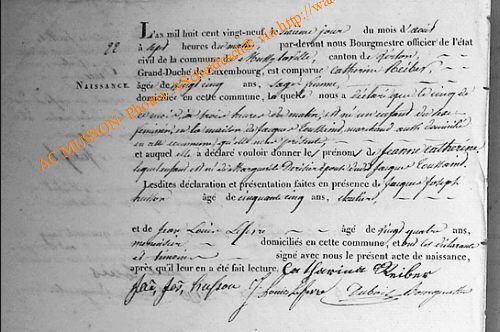 22
Naissance
L'AN mil huit cent vingt-neuf, le sixième jour du mois d'août
à sept heures du matin, par-devant nous Bourgmestre officier de l'état
civil de la commune de canton de
Grand-Duché de Luxembourg, est comparue Catherine Reiber,
âgée de vingt cinq ans, sage femme,
domiciliée en cette commune, laquelle nous a déclaré que le cinq de
ce mois, à trois heures du matin, est né un enfant du sexe
féminin, en la maison de Jacques Toussaint, marchand audit domicilié
en cette commune,
et auquel elle a déclaré vouloir donner les prénoms de Jeanne Catherine,
lequel enfant est né de Marguerite Jacques Toussaint.
Lesdites déclaration et présentation faites en présence de Jacques Joseph
husson âgé de cinquante cinq ans, cloutier,
et de Jean Louis Lefevre âgé de vingt quatre ans,
menuisier domiciliés en cette commune, et ont les déclarante
et témoins signé avec nous le présent acte de naissance,
après qu'il leur en a été fait lecture. Catharina Reiber
husson J Louis Lefevre Bourgmestre
AC MUSSON- Photos http://wa